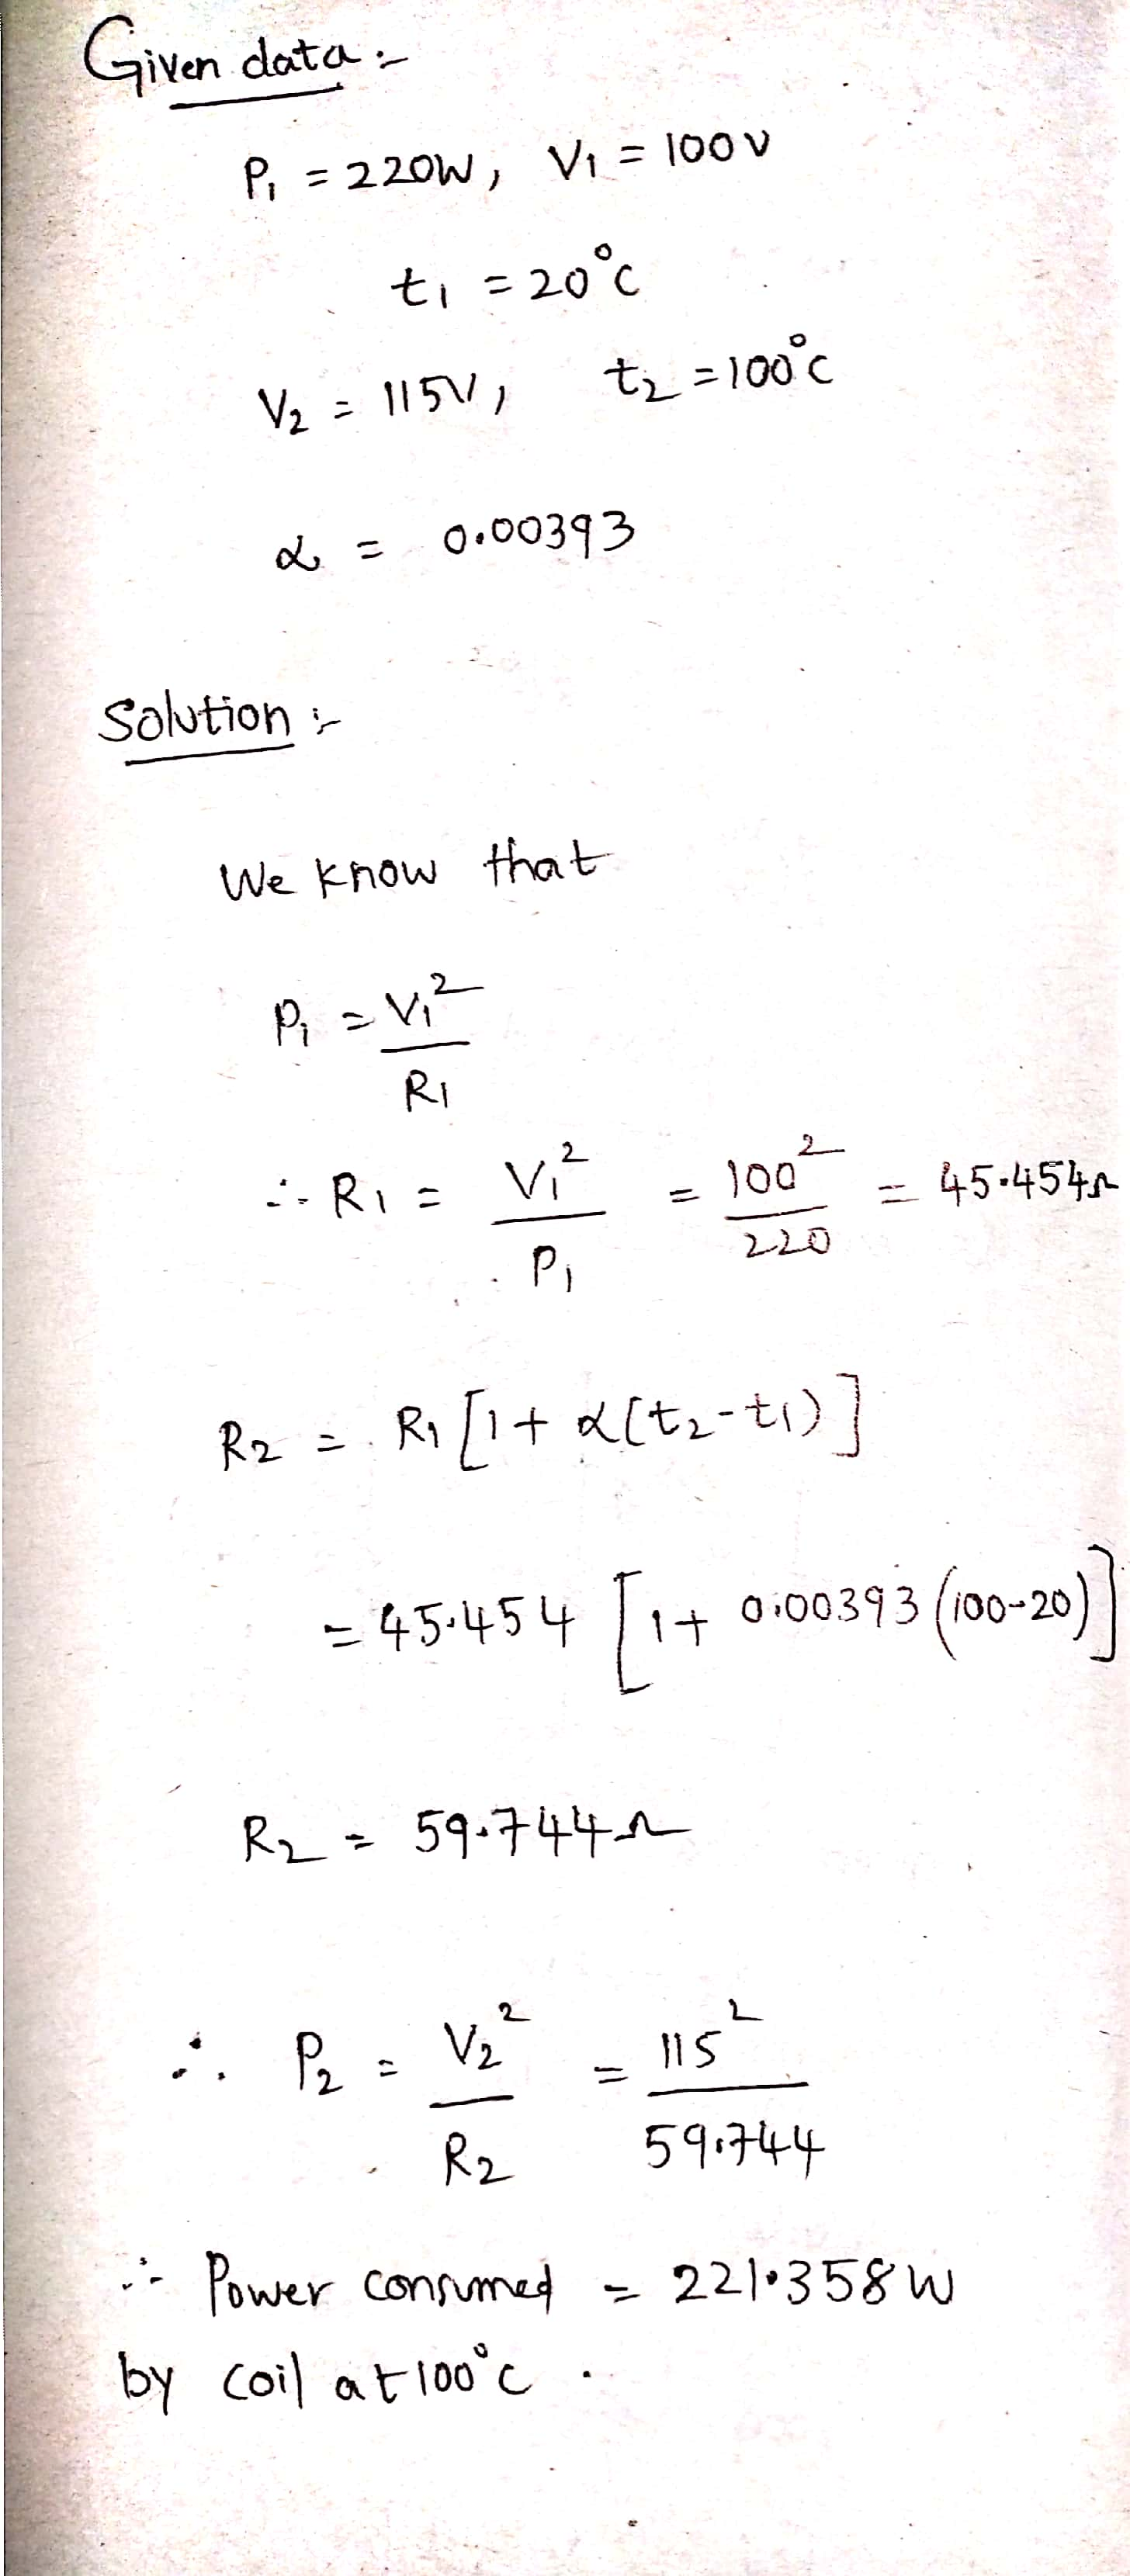 Given data :-
P₁ = 220W, V₁ = 100V
t₁ = 20°C
V₂ = 115V, t₂ = 100°C
α = 0.00393
Solution :-
We know that
P₁ = V₁² / R₁
∴ R₁ = V₁² / P₁ = 100² / 220 = 45.454Ω
R₂ = R₁ [1 + α(t₂-t₁)]
= 45.454 [1 + 0.00393 (100-20)]
R₂ = 59.744Ω
∴ P₂ = V₂² / R₂ = 115² / 59.744
∴ Power consumed = 221.358W
by coil at 100°C .